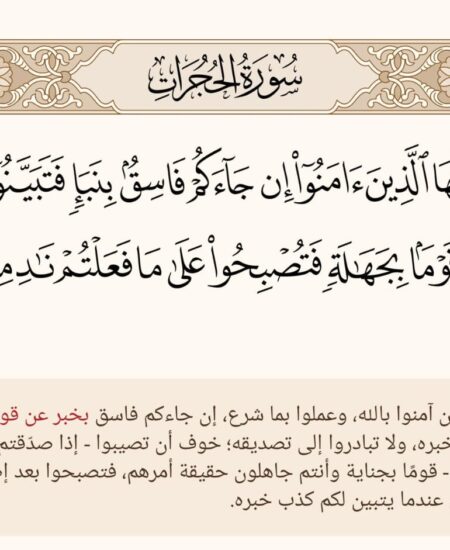 سُورَةُ الحُجُرَاتِ
ٱلَّذِينَ ءَامَنُوٓاْ إِن جَآءَكُمۡ فَاسِقُۢ بِنَبَإٖ
بِجَهَٰلَةٖ فَتُصۡبِحُواْ عَلَىٰ مَا فَعَلۡتُمۡ
آمنوا بالله، وعملوا بما شرع، إن جاءكم فاسق بخبر عن
خبره، ولا تبادروا إلى تصديقه؛ خوف أن تصيبوا - إذا صدّقتم
- قومًا بجناية وأنتم جاهلون حقيقة أمرهم، فتصبحوا بعد
عندما يتبين لكم كذب خبره.